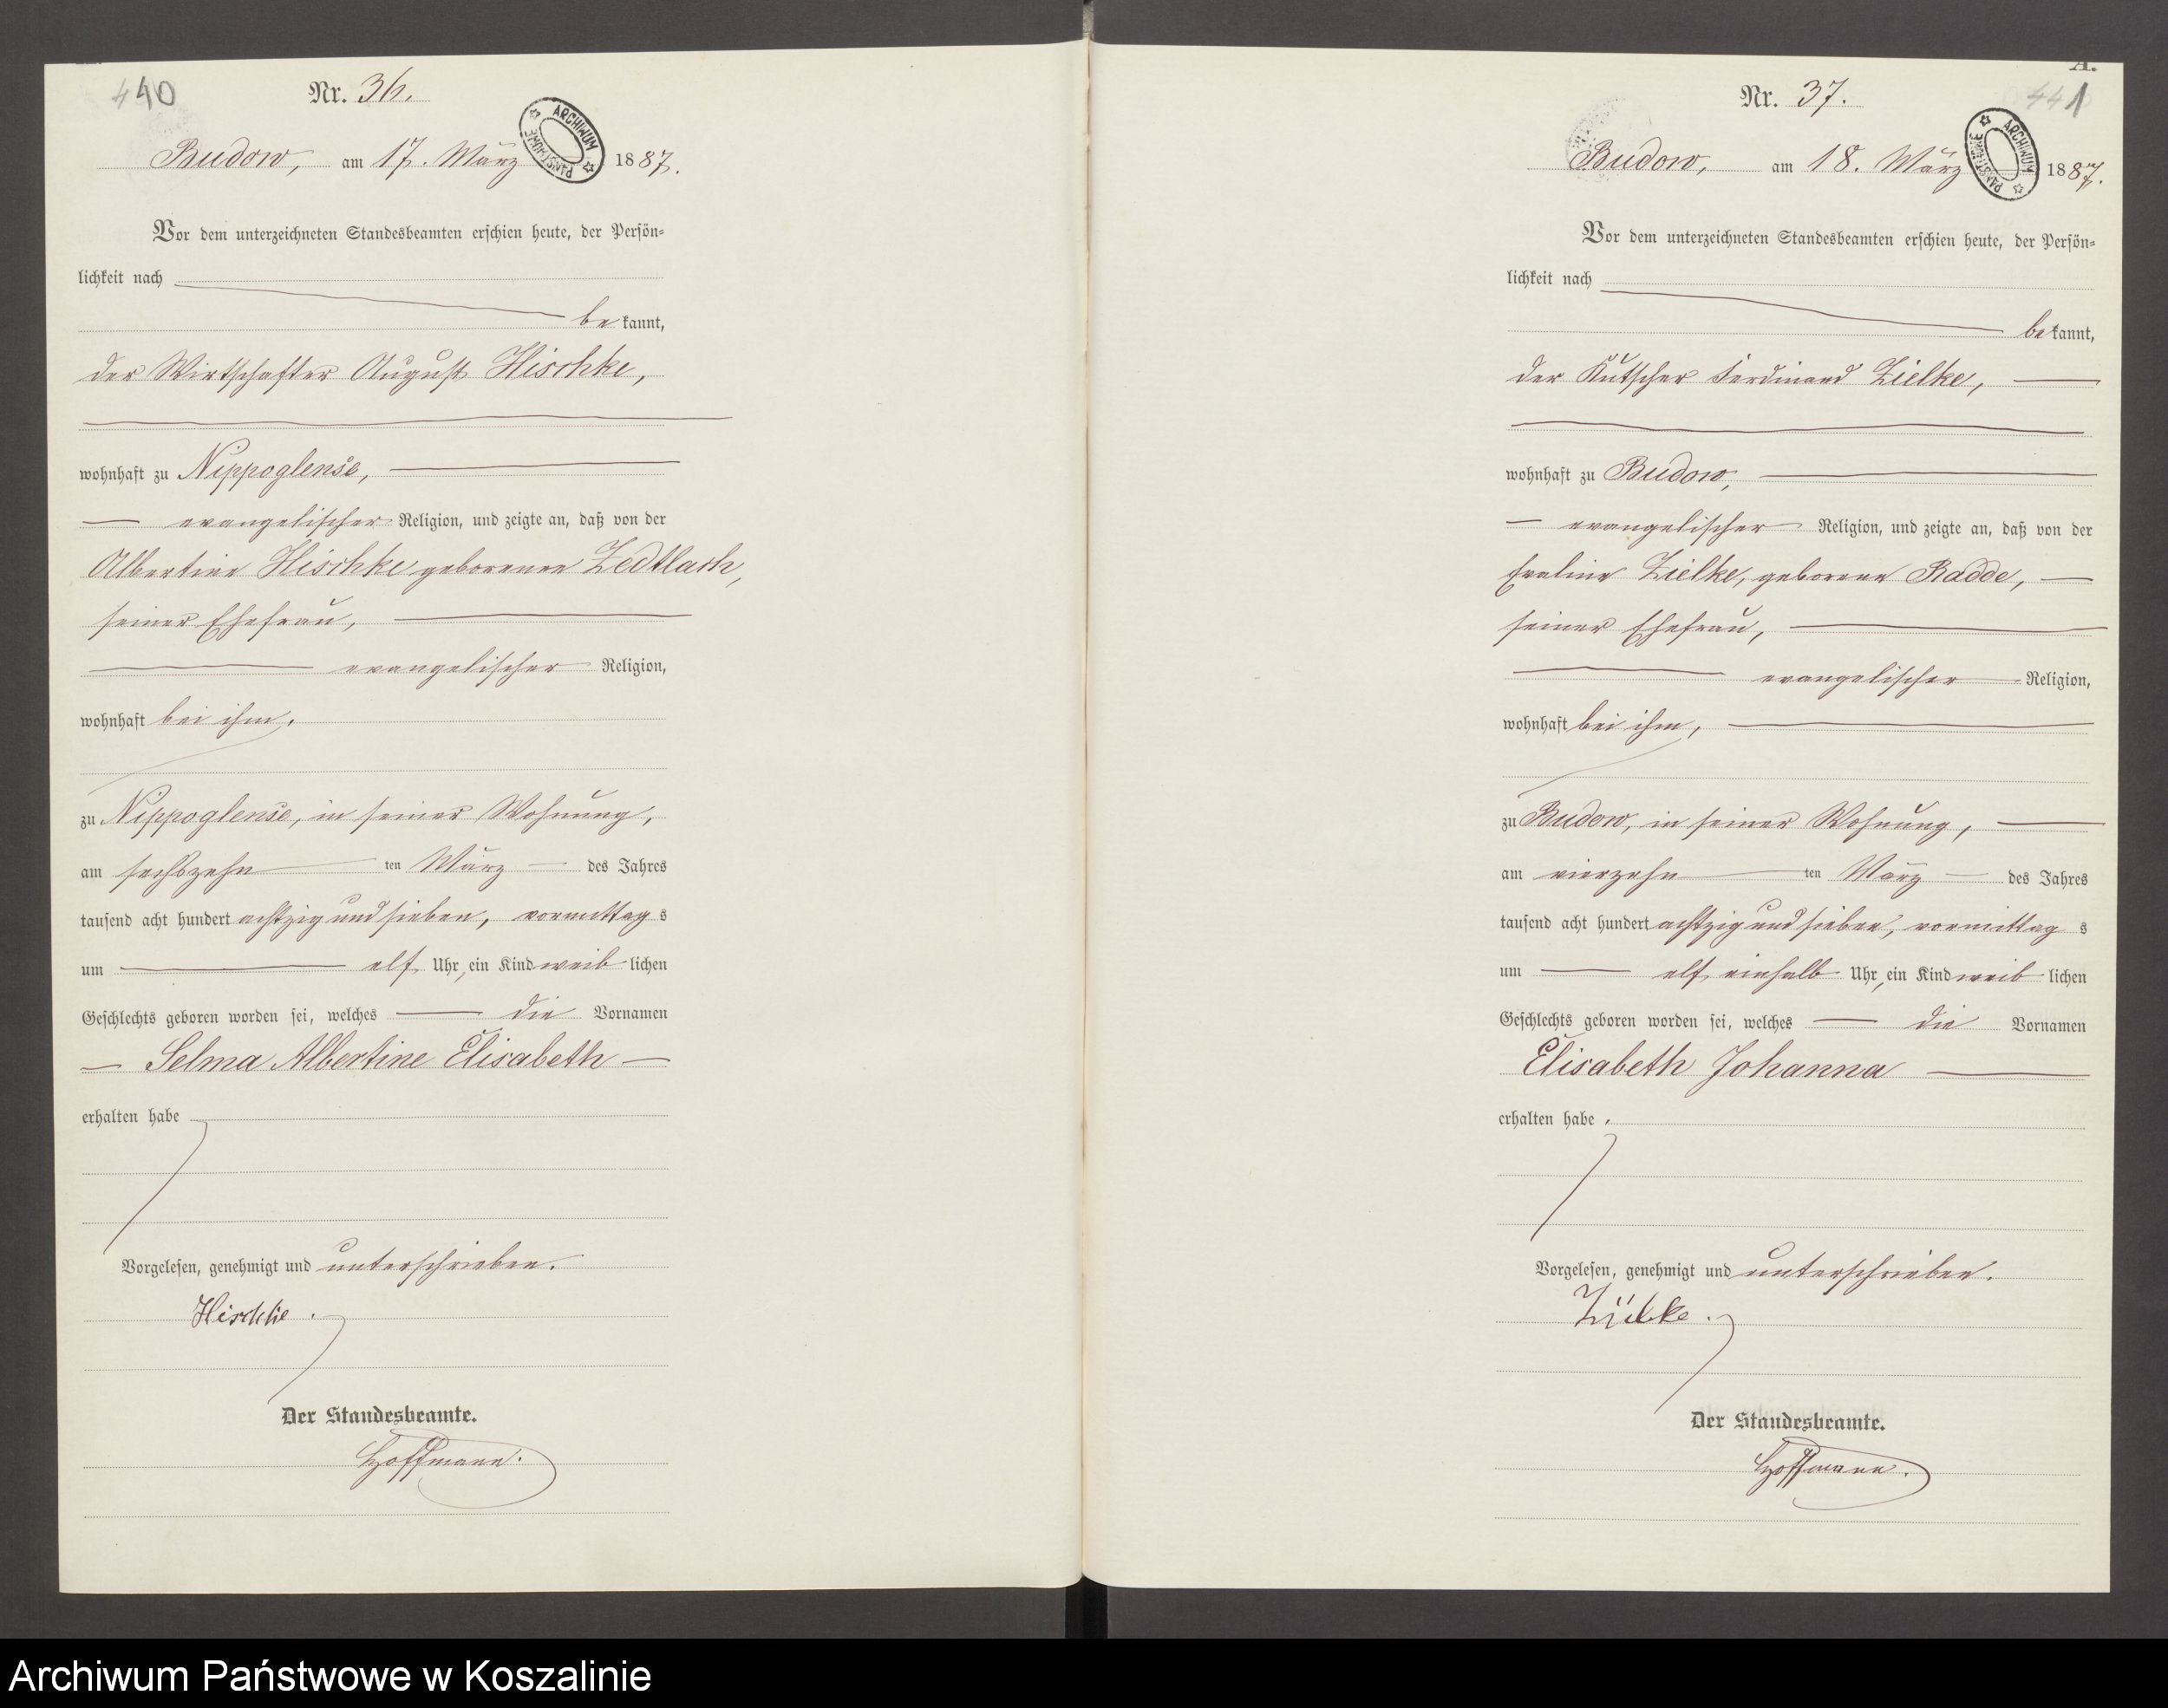 440
Nr. 36.
ARCHIWUM PAŃSTWOWE
Budow, am 17. März 1887.
Vor dem unterzeichneten Standesbeamten erschien heute, der Persön=
lichkeit nach
be kannt,
der Wirtschafter August Hischke,
wohnhaft zu Nippoglense,
evangelischer Religion, und zeigte an, daß von der
Albertine Hischke geborenen Zedtlach,
seiner Ehefrau,
evangelischer Religion,
wohnhaft bei ihm,
zu Nippoglense, in seiner Wohnung,
am sechszehn ten März des Jahres
tausend acht hundert achtzig und sieben, vormittag s
um elf Uhr, ein Kind weib lichen
Geschlechts geboren worden sei, welches die Vornamen
Selma Albertine Elisabeth
erhalten habe
Vorgelesen, genehmigt und unterschrieben.
Hischke.
Der Standesbeamte.
Hoffmann.
A.
441
Nr. 37.
ARCHIWUM PAŃSTWOWE
Budow, am 18. März 1887.
Vor dem unterzeichneten Standesbeamten erschien heute, der Persön=
lichkeit nach
be kannt,
der Kutscher Ferdinand Zielke,
wohnhaft zu Budow,
evangelischer Religion, und zeigte an, daß von der
Evaline Zielke, geborene Radde,
seiner Ehefrau,
evangelischer Religion,
wohnhaft bei ihm,
zu Budow, in seiner Wohnung,
am vierzehn ten März des Jahres
tausend acht hundert achtzig und sieben, vormittag s
um elf einhalb Uhr, ein Kind weib lichen
Geschlechts geboren worden sei, welches die Vornamen
Elisabeth Johanna
erhalten habe.
Vorgelesen, genehmigt und unterschrieben.
Zielke.
Der Standesbeamte.
Hoffmann.
Archiwum Państwowe w Koszalinie